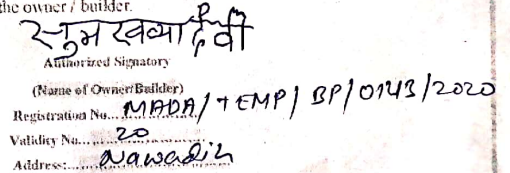 the owner / builder.
देवी
Authorized Signatory
(Name of Owner/Builder)
Registration No... MADA/TEMP/BP/0143/2020
Validity No... 20
Address:... Nawadih